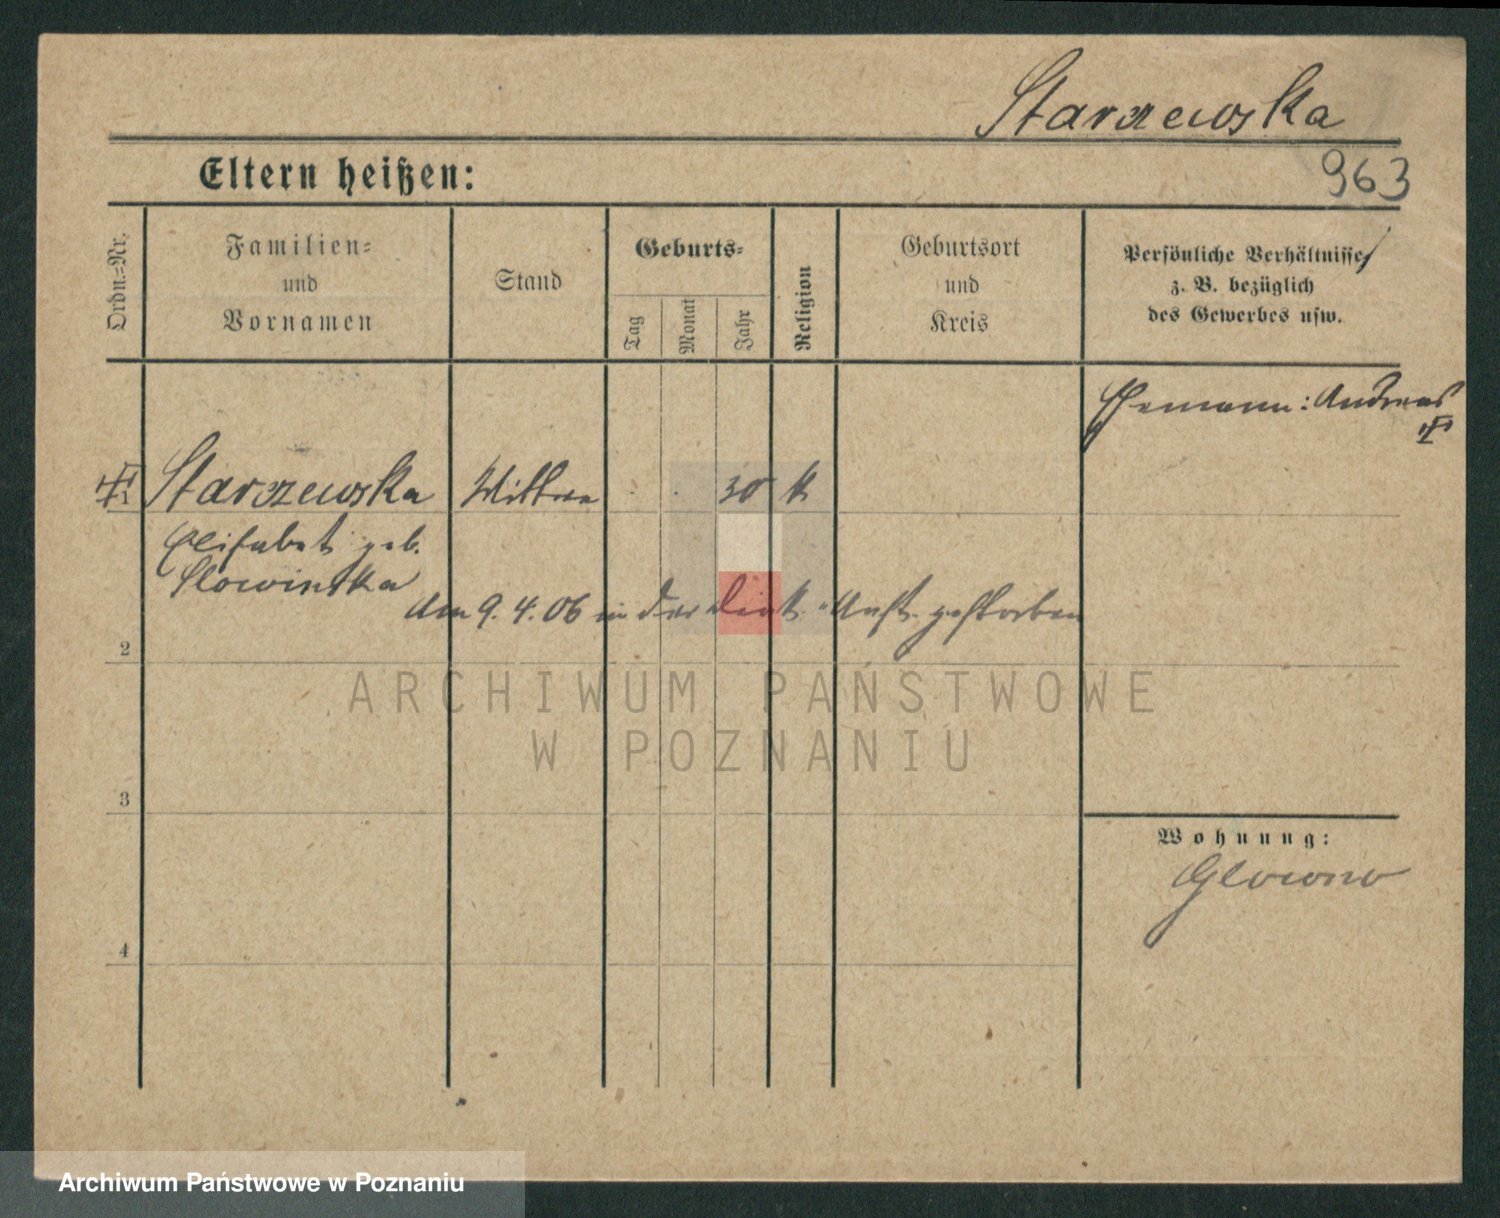 Starzewska
Eltern heißen:
963
Ordn.=Nr.
Familien=
und
Vornamen
Stand
Geburts=
Tag
Monat
Jahr
Religion
Geburtsort
und
Kreis
Persönliche Verhältnisse
z. B. bezüglich
des Gewerbes usw.
Ehemann: Andreas
Starzewska Wittwe 30 k
Elisabet geb.
Slowinska
Am 9. 4. 06 in der Diak. Anst. gestorben
2
ARCHIWUM PAŃSTWOWE
W POZNANIU
3
Wohnung:
Glowno
4
Archiwum Państwowe w Poznaniu